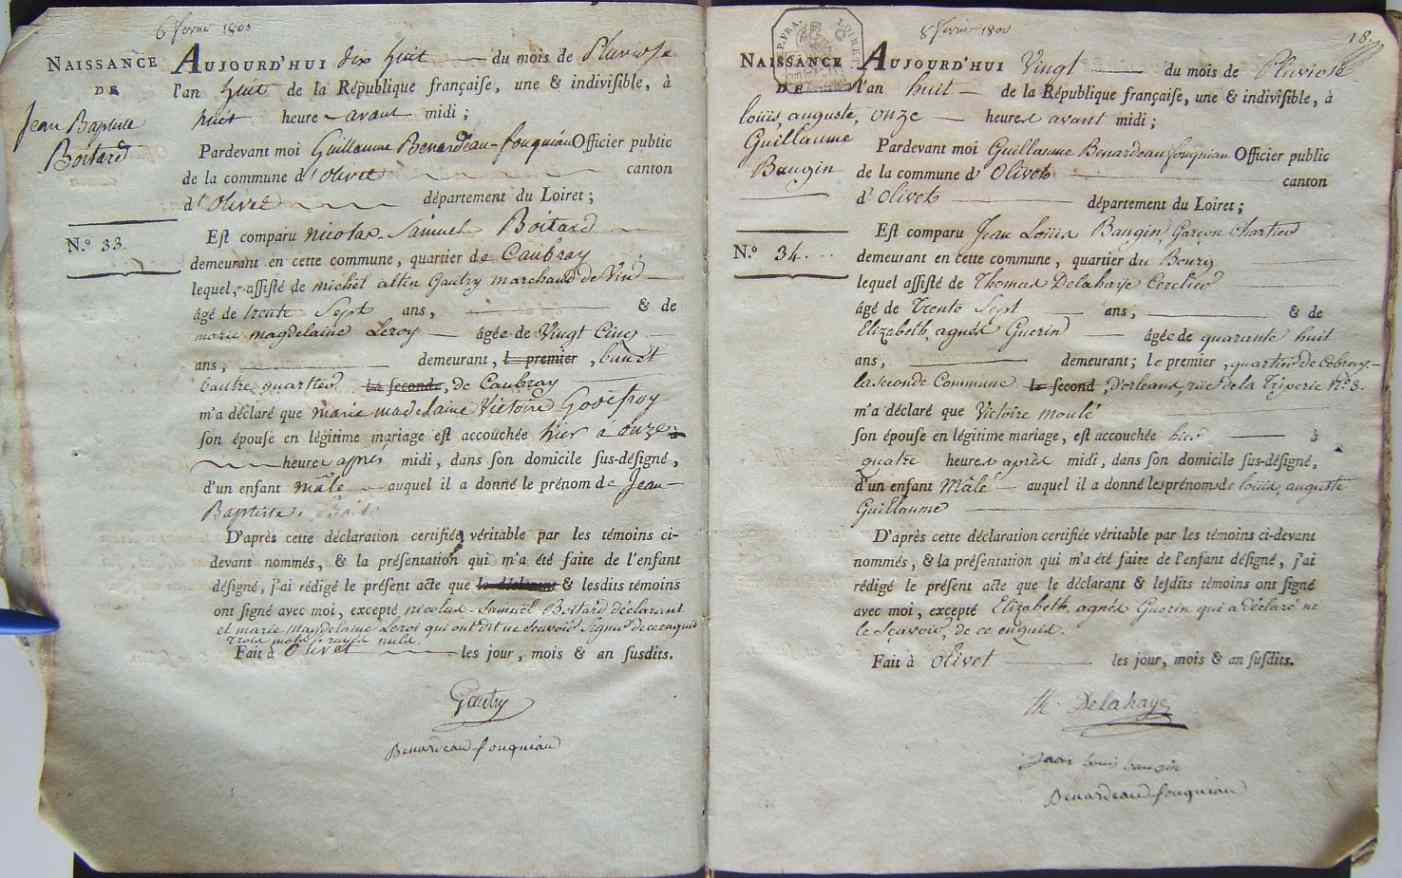 6 fevrier 1800
NAISSANCE
DE
Jean Baptiste
Boitard
N.º 33.
AUJOURD'HUI dix huit du mois de Pluviose
l'an huit de la République françaiſe, une & indiviſible, à
huit heure avant midi ;
Pardevant moi Guillaume Benardeau-fouqniau Officier public
de la commune d'olivet canton
d'olivet département du Loiret ;
Eſt comparu nicolas Samuel Boitard
demeurant en cette commune, quartier de Caubray
lequel, aſſiſté de michel Gautry marchand de Vin
âgé de trente Sept ans, & de
marie magdelaine Leroy âgée de Vingt Cinq
ans, demeurant, le premier,
quartier La ſeconde, de Caubray
m'a déclaré que marie madelaine Victoire Godefroy
ſon épouſe en légitime mariage eſt accouchée hier à onze
heures après midi, dans ſon domicile ſus-déſigné,
d'un enfant mâle auquel il a donné le prénom de Jean
Baptiste
D'après cette déclaration certifiée véritable par les témoins ci-
devant nommés, & la préſentation qui m'a été faite de l'enfant
déſigné, j'ai rédigé le préſent acte que le déclarant & leſdits témoins
ont ſigné avec moi, excepté nicolas Samuel Boitard déclarant
et marie Magdelaine Leroi qui ont dit ne Sçavoir Signer de ce enquis
trois mots rayés nuls
Fait à Olivet les jour, mois & an ſuſdits.
Gautry
Benardeau-fouqniau
8 fevrier 1800
18
NAISSANCE
DE
louis, auguste,
Guillaume
Baugin
N.º 34.
AUJOURD'HUI Vingt du mois de Pluviose
l'an huit de la République françaiſe, une & indiviſible, à
onze heures avant midi ;
Pardevant moi Guillaume Benardeau fouqniau Officier public
de la commune d'Olivet canton
d'Olivet département du Loiret ;
Eſt comparu Jean Louis Baugin, Garçon Chartier
demeurant en cette commune, quartier du Bourg
lequel aſſiſté de Thomas Delahaye Cerclier
âgé de Trente Sept ans, & de
Elizabeth, agnès Guerin âgée de quarante huit
ans, demeurant ; le premier, quartier de Cobray,
la seconde Commune le ſecond, D'orleans, rue de la Triperie N.º 3.
m'a déclaré que Victoire moulé
ſon épouſe en légitime mariage, eſt accouchée hier à
quatre heures après midi, dans ſon domicile ſus-déſigné,
d'un enfant Mâle auquel il a donné les prénoms de louis, auguste
Guillaume
D'après cette déclaration certifiée véritable par les témoins ci-devant
nommés, & la préſentation qui m'a été faite de l'enfant déſigné, j'ai
rédigé le préſent acte que le déclarant & leſdits témoins ont ſigné
avec moi, excepté Elizabeth agnès Guerin qui a déclaré ne
le Sçavoir, de ce enquis.
Fait à olivet les jour, mois & an ſuſdits.
th. Delahaye
Jean louis baugin
Benardeau-fouqniau